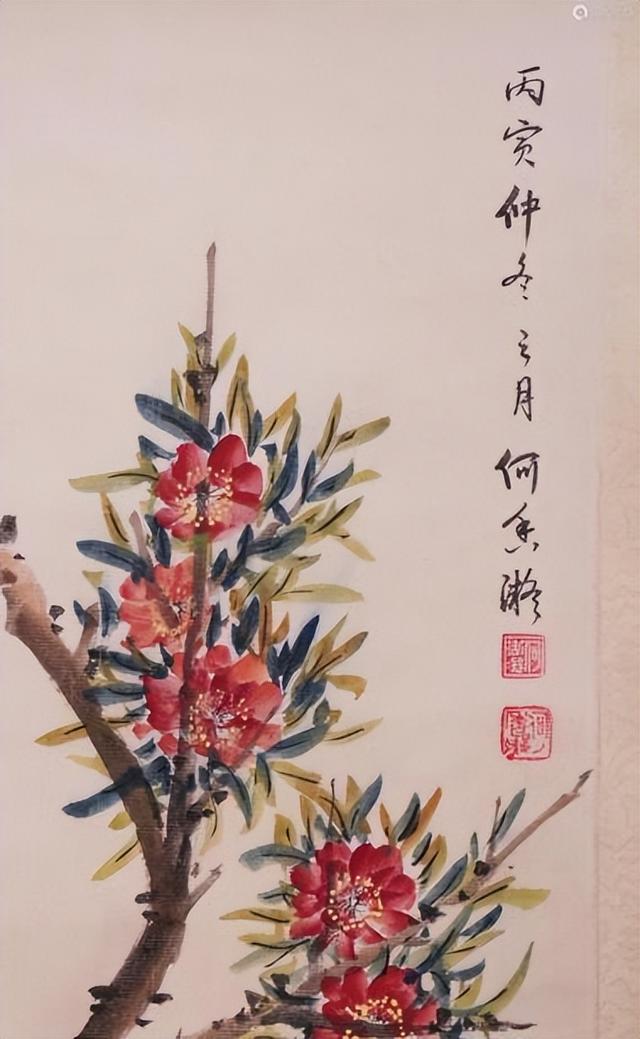 丙寅仲冬之月何香凝